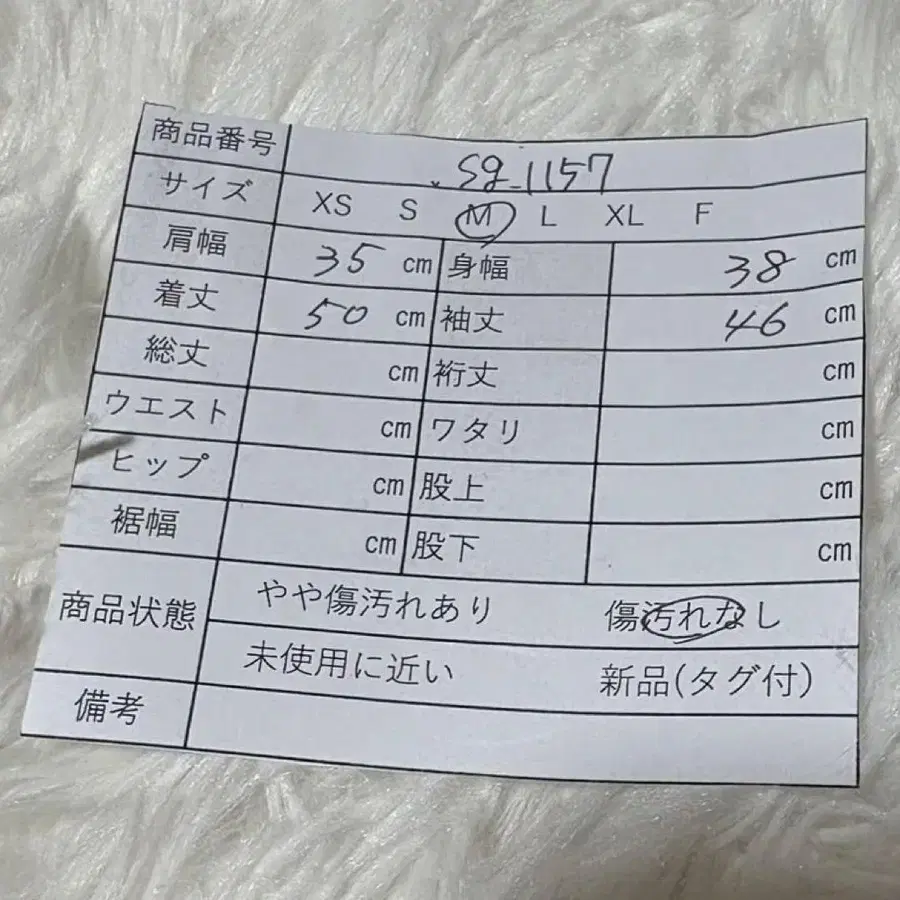 商品番号 sg-1157
サイズ XS S M L XL F
肩幅 35 cm 身幅 38 cm
着丈 50 cm 袖丈 46 cm
総丈 cm 裄丈 cm
ウエスト cm ワタリ cm
ヒップ cm 股上 cm
裾幅 cm 股下 cm
商品状態 やや傷汚れあり 傷汚れなし
未使用に近い 新品(タグ付)
備考